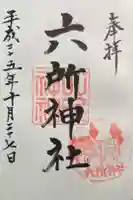 奉拝
六所神社
平成二五年十月二十七日